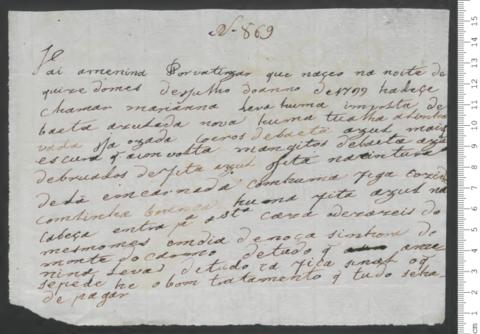 N. 869
Vai amenina Porvatizar que naçeo na noite de
quize domes de Julho doanno de 1799 hadeçe
chamar marianna leva huma imvolta de
baeta azulada nova huma tualha
vada ja uzada coeiros debaeta azus mais
escura q aimvolta mangitos debaeta azul
debruados de fita azul fita na cintura
de lã emcarnada comhuma figa cozida
comlinha branca huma fita azul na
cabeça entra pª esta caza
mesmomes emdia de noça sinhora do
monte do carmo detudo q ame
nina leva detudo ca fica sinal oq
sepede he o bom tratamento q tudo sera
de pagar
cm 1 2 3 4 5 6 7 8 9 10 11 12 13 14 15